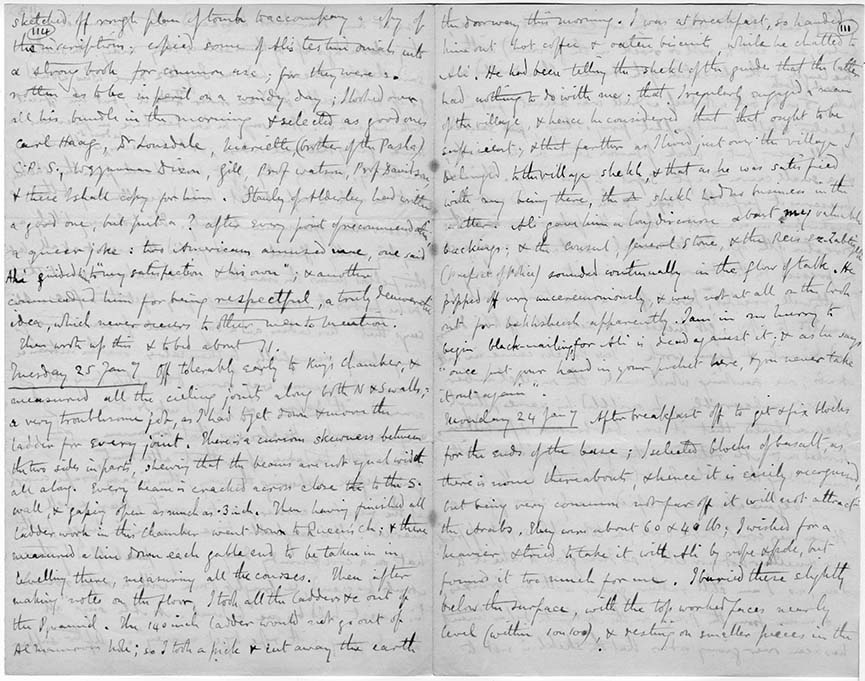 sketched off rough plan of tomb to accompany a copy of
114
the inscriptions; copied some of Ali's testimonials into
a strong book for common use; for they were so
rotten as to be in peril on a windy day; I looked over
all his bundle in the morning & selected as good ones
Carl Haag, Dr Lonsdale, Mariette (brother of the Pasha)
C.P.S., Waynman Dixon, Gill, Prof Watson, Prof Davidson,
& these I shall copy for him. Stanley of Alderley had written
a good one, but put a ? after every point of recommendation,
a queer joke: two Americans amused me, one said
Ali guided "to my satisfaction & his own"; & another
commended him for being respectful, a truly democratic
idea, which never occurs to other men to mention.
Then wrote up this & to bed about 11.
Tuesday 25 Jan 7 Off tolerably early to King's Chamber, &
measured all the ceiling joints along both N & S walls,
a very troublesome job, as I had to get down & move the
ladder for every joint. There is a curious skewness between
the two sides in parts, shewing that the beams are not equal width
all along. Every beam is cracked across close to the S.
wall, & gaping open as much as .3 inch. Then having finished all
ladder work in this Chamber went down to Queen's Ch; & there
measured a line down each gable end to be taken in in
levelling there, measuring all the courses. Then after
making notes on the floor, I took all the ladders &c out of
the Pyramid. The 140 inch ladder would not go out of
Al Mamun's hole; so I took a pick & cut away the earth
the doorway this morning. I was at breakfast, so handed
111
him out hot coffee & oaten biscuit, while he chatted to
Ali. He had been telling the shekh of the guides that the latter
had nothing to do with me; that I regularly engaged a man
of the village & hence he considered that that ought to be
sufficient; & that farther as I lived just over the village I
belonged to the village shekh, & that as he was satisfied
with my being there, the shekh had no business in the
matter. Ali gave him a long discourse about my valuable
backings; & the consul, general Stone, & the Reis ez Zabtiyeh
(prefect of Police) sounded continually in the flow of talk. He
popped off very unceremoniously, & was not at all on the look
out for bakhshesh apparently. I am in no hurry to
begin black-mailing, for Ali is dead against it, & as he says
"once put your hand in your pocket here, & you never take
it out again".
Monday 24 Jan 7 After breakfast off to get & fix blocks
for the ends of the base; I selected blocks of basalt as
there is none thereabouts, & hence it is easily recognised,
but being very common not far off it will not attract
the Arabs. They were about 60 & 40 lbs; I wished for a
heavier & tried to take it with Ali by rope & pole, but
found it too much for me. I buried these slightly
below the surface, with the top worked faces nearly
level (within 1 on 100), & resting on smaller pieces in the